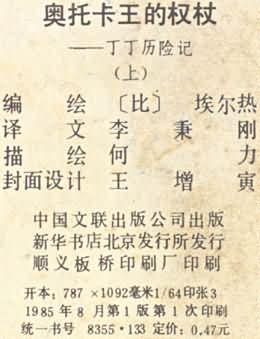 奥托卡王的权杖
——丁丁历险记
(上)
编绘〔比〕埃尔热
译文李秉刚
描绘何力
封面设计王增寅
中国文联出版公司出版
新华书店北京发行所发行
顺义板桥印刷厂印刷
开本:787×1092毫米1/64印张3
1985年8月第1版第1次印刷
统一书号 8355·133 定价:0.47元